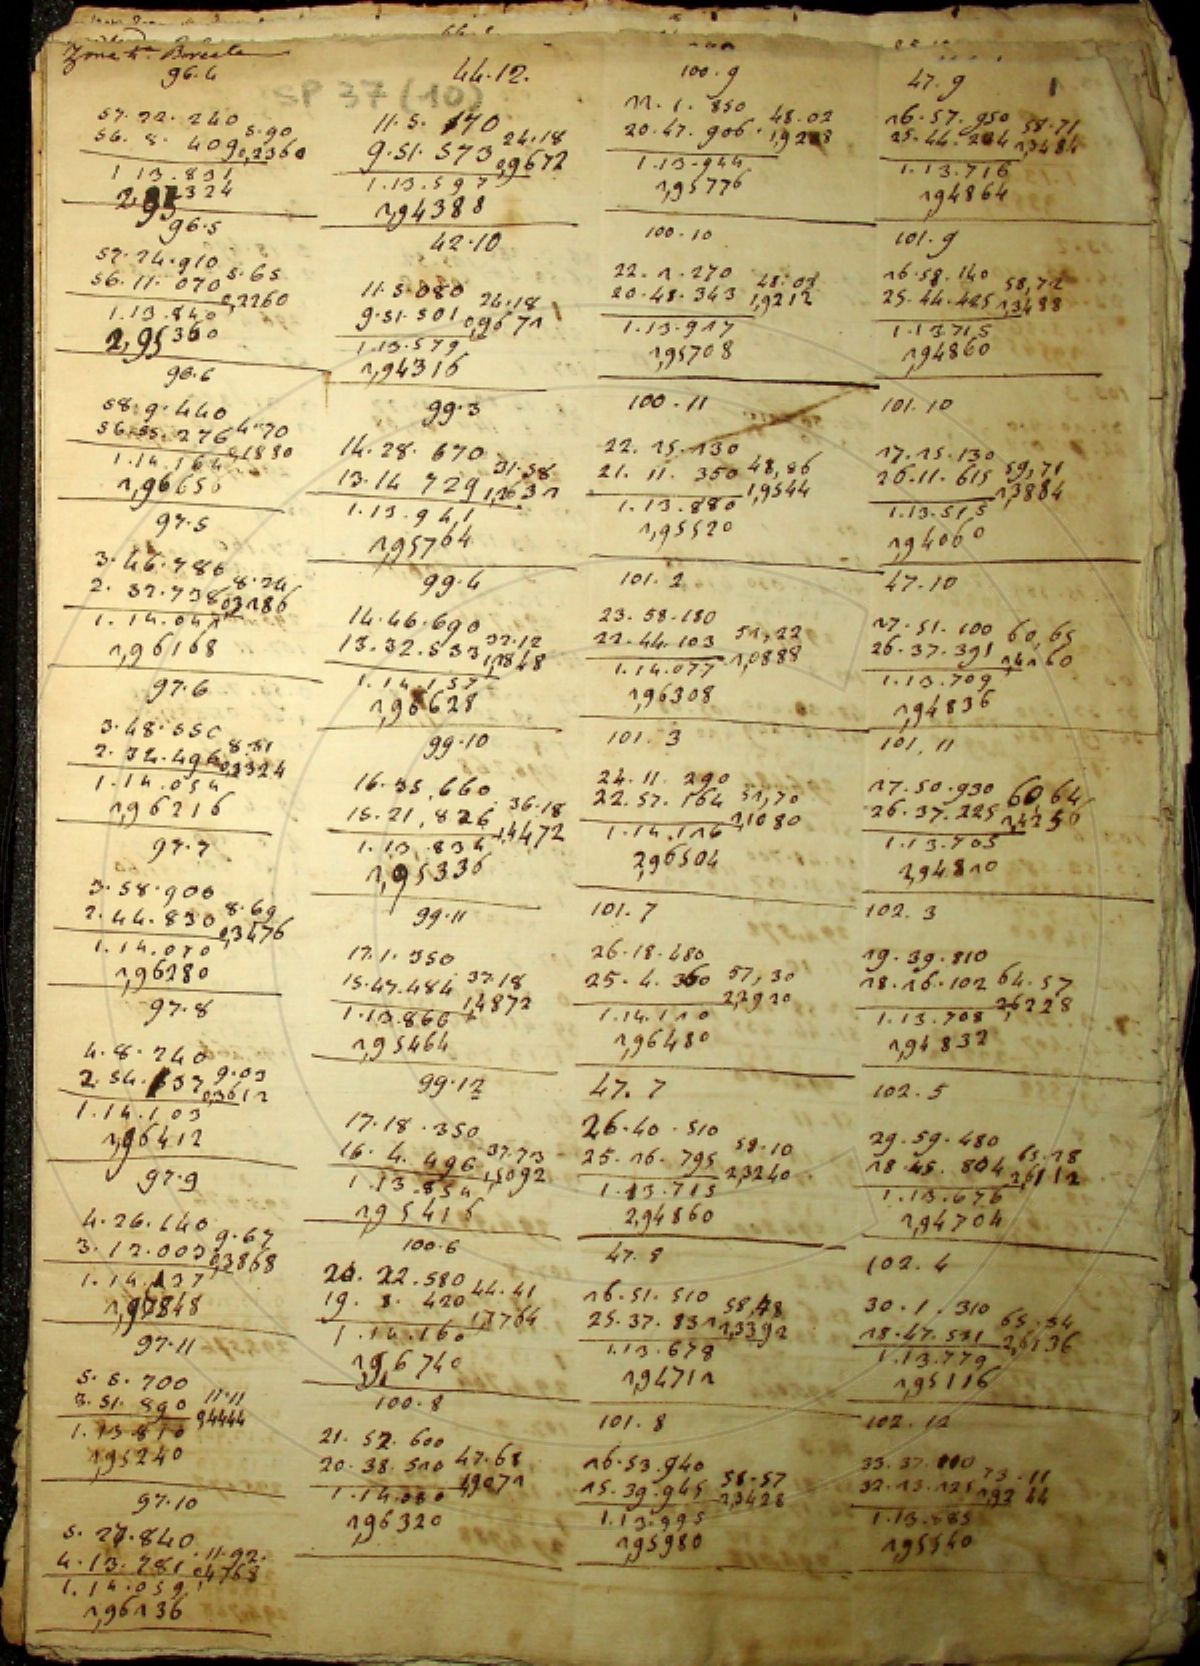 Zone 4ª Boreale
96.4
57.22.240
56.8.409 5.90
0,2360
1.13.831
324
96.5
57.24.910
56.11.070 5.65
0,2260
1.13.840
2,95360
96.6
58.9.440
56.55.276 4.70
0,1880
1.14.164
1,96656
97.5
3.46.786
2.32.738 8.24
1.14.047
1,96168
97.6
3.48.550
2.34.496 8.31
0,3324
1.14.054
1,96216
97.7
3.58.900
2.44.830 8.69
0,3476
1.14.070
1,96280
97.8
4.8.240
2.54.137 9.03
0,3612
1.14.103
1,96412
97.9
4.26.140
3.12.003 9.67
0,3868
1.14.137
97.11
5.5.700
3.51.890 11.11
0,4444
1.13.810
1,95240
97.10
5.27.840
4.13.781 11.92
0,4768
1.14.059
1,96136
SP 37 (10)
44.12.
11.5.170
9.51.573 24.18
0,9672
1.13.597
1,94388
42.10
11.5.080
9.51.501 24.18
0,9671
1.13.579
1,94316
99.3
14.28.670
13.14.729 31.58
1,2631
1.13.941
1,95764
99.4
14.46.690
13.32.533 32.12
1,2848
1.14.157
1,96628
99.10
16.35.660
15.21.826 36.18
1,4472
1.13.834
1,95336
99.11
17.1.350
15.47.484 37.18
1,4872
1.13.866
1,95464
99.12
17.18.350
16.4.496 37.73
1,5092
1.13.854
1,95416
100.6
20.22.580
19.8.420 44.41
1,7764
1.14.160
1,96740
100.8
21.52.600
20.38.510 47.68
1,9071
1.14.080
1,96320
100.9
22.1.850
20.47.906 48.02
1,9208
1.13.944
1,95776
100.10
22.1.270
20.48.343 48.03
1,9212
1.13.917
1,95708
100.11
22.15.130
21.11.350 48,86
1,9544
1.13.880
1,95520
101.2
23.58.180
22.44.103 51,22
1,0888
1.14.077
1,96308
101.3
24.11.290
22.57.164 51,70
1,1080
1.14.116
2,96504
101.7
26.18.480
25.4.360 57,30
2,2920
1.14.110
1,96480
47.7
26.40.510
25.16.795 58.10
2,3240
1.13.715
2,94860
47.8
16.51.510
25.37.831 58,48
1,3392
1.13.678
1,94711
101.8
16.53.940
15.39.945 58.57
1,3428
1.13.995
1,95980
47.9
1
16.57.950
25.44.234 58.71
1,3484
1.13.716
1,94864
101.9
16.58.140
25.44.425 58,72
1,3488
1.13.715
1,94860
101.10
17.15.130
26.11.615 59,71
1,3884
1.13.515
1,94060
47.10
17.51.100
26.37.391 60,65
1,4160
1.13.709
1,94836
101.11
17.50.930
26.37.225 60,64
1,4256
1.13.705
2,94810
102.3
19.39.810
18.16.102 64.57
2,6228
1.13.708
1,94832
102.5
29.59.480
18.45.804 65.28
2,6112
1.13.676
1,94704
102.4
30.1.310
18.47.531 65.34
2,6136
1.13.779
1,95116
102.12
33.37.010
32.13.125 73.11
1,9244
1.13.885
1,95540